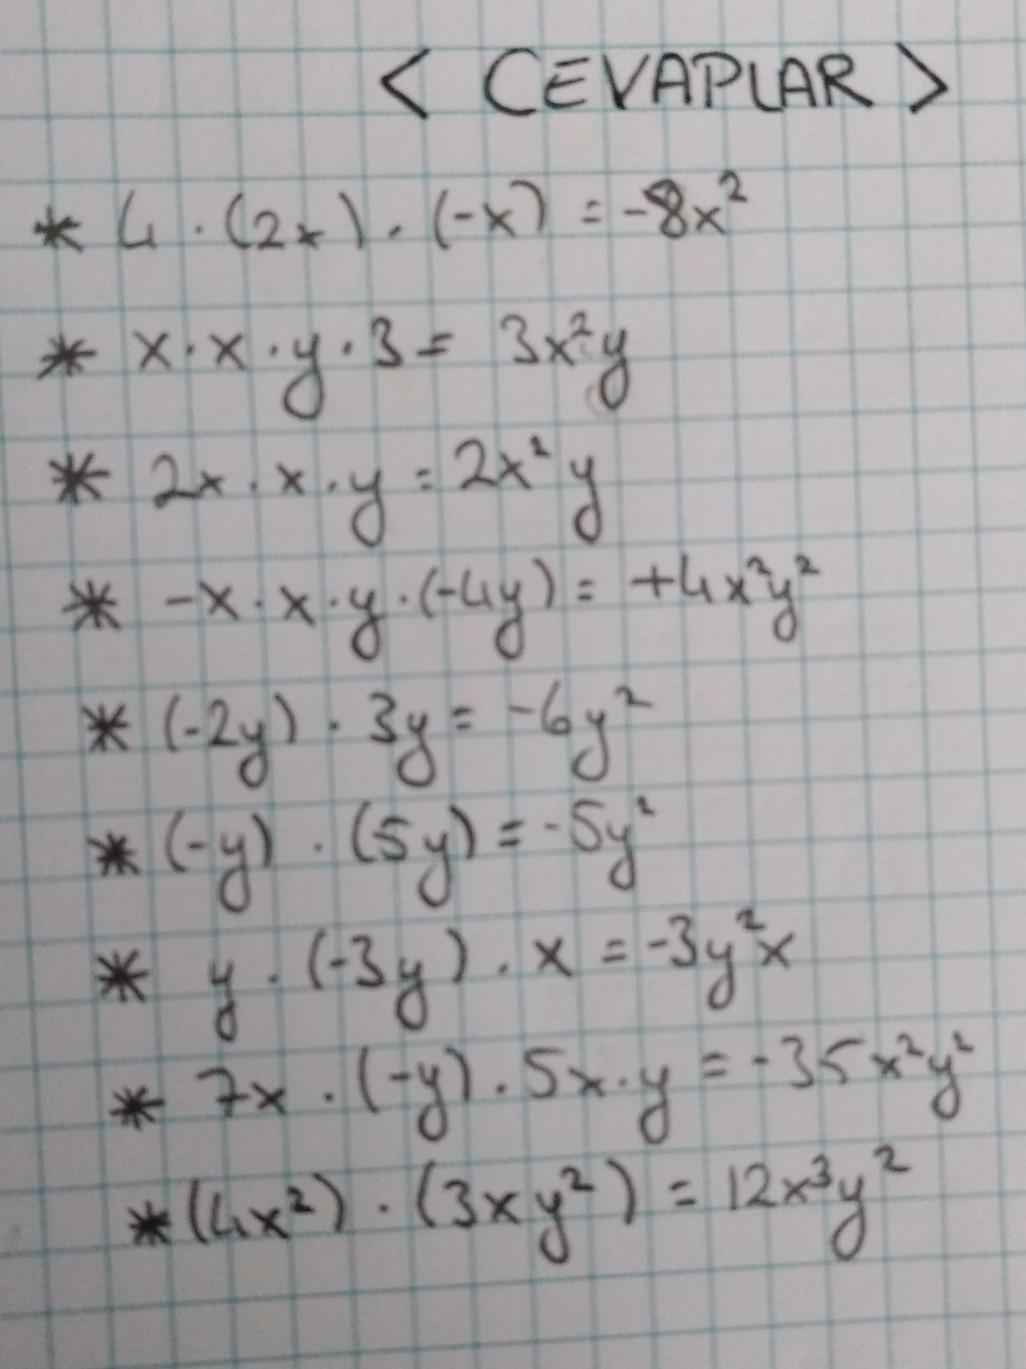 < CEVAPLAR >
* 4 . (2x) . (-x) = -8x²
* x . x . y . 3 = 3x²y
* 2x . x . y = 2x²y
* -x . x . y . (-4y) = +4x²y²
* (-2y) . 3y = -6y²
* (-y) . (5y) = -5y²
* y . (-3y) . x = -3y²x
* 7x . (-y) . 5x . y = -35x²y²
* (4x²) . (3xy²) = 12x³y²